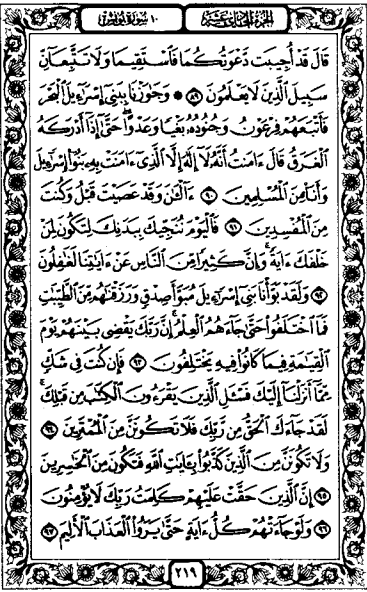 ١٠ سورة يونس
الجزء الحادي عشر
قَالَ قَدْ أُجِيبَت دَّعْوَتُكُمَا فَٱسْتَقِيمَا وَلَا تَتَّبِعَآنِّ
سَبِيلَ ٱلَّذِينَ لَا يَعْلَمُونَ ٨٩ ۞ وَجَٰوَزْنَا بِبَنِىٓ إِسْرَٰٓءِيلَ ٱلْبَحْرَ
فَأَتْبَعَهُمْ فِرْعَوْنُ وَجُنُودُهُۥ بَغْيًا وَعَدْوًا ۖ حَتَّىٰٓ إِذَآ أَدْرَكَهُ
ٱلْغَرَقُ قَالَ ءَامَنتُ أَنَّهُۥ لَآ إِلَٰهَ إِلَّا ٱلَّذِىٓ ءَامَنَتْ بِهِۦ بَنُوٓا۟ إِسْرَٰٓءِيلَ
وَأَنَا۠ مِنَ ٱلْمُسْلِمِينَ ٩٠ ءَآلْـَٰٔنَ وَقَدْ عَصَيْتَ قَبْلُ وَكُنتَ
مِنَ ٱلْمُفْسِدِينَ ٩١ فَٱلْيَوْمَ نُنَجِّيكَ بِبَدَنِكَ لِتَكُونَ لِمَنْ
خَلْفَكَ ءَايَةً ۚ وَإِنَّ كَثِيرًا مِّنَ ٱلنَّاسِ عَنْ ءَايَٰتِنَا لَغَٰفِلُونَ
٩٢ وَلَقَدْ بَوَّأْنَا بَنِىٓ إِسْرَٰٓءِيلَ مُبَوَّأَ صِدْقٍ وَرَزَقْنَٰهُم مِّنَ ٱلطَّيِّبَٰتِ
فَمَا ٱخْتَلَفُوا۟ حَتَّىٰ جَآءَهُمُ ٱلْعِلْمُ ۚ إِنَّ رَبَّكَ يَقْضِى بَيْنَهُمْ يَوْمَ
ٱلْقِيَٰمَةِ فِيمَا كَانُوا۟ فِيهِ يَخْتَلِفُونَ ٩٣ فَإِن كُنتَ فِى شَكٍّ
مِّمَّآ أَنزَلْنَآ إِلَيْكَ فَسْـَٔلِ ٱلَّذِينَ يَقْرَءُونَ ٱلْكِتَٰبَ مِن قَبْلِكَ ۚ
لَقَدْ جَآءَكَ ٱلْحَقُّ مِن رَّبِّكَ فَلَا تَكُونَنَّ مِنَ ٱلْمُمْتَرِينَ ٩٤
وَلَا تَكُونَنَّ مِنَ ٱلَّذِينَ كَذَّبُوا۟ بِـَٔايَٰتِ ٱللَّهِ فَتَكُونَ مِنَ ٱلْخَٰسِرِينَ
٩٥ إِنَّ ٱلَّذِينَ حَقَّتْ عَلَيْهِمْ كَلِمَتُ رَبِّكَ لَا يُؤْمِنُونَ
٩٦ وَلَوْ جَآءَتْهُمْ كُلُّ ءَايَةٍ حَتَّىٰ يَرَوُا۟ ٱلْعَذَابَ ٱلْأَلِيمَ ٩٧
٢١٩